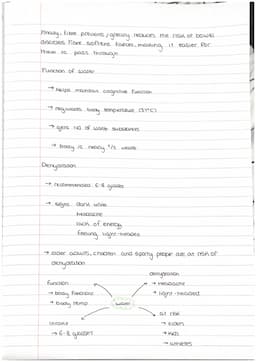 Finally, Fibre prevents/greatly reduces the risk of bowel
diseases. Fibre softens faeces, making it easier for
them to pass through.
Function of water
→ helps maintain cognitive function
→ regulates body temperature (37°C)
→ gets rid of waste substances
→ body is nearly ²/₃ water
Dehydration
→ recommended 6-8 glasses
→ signs: dark urine
headache
lack of energy
feeling light-headed
→ older adults, children and sporty people are at risk of
dehydration
dehydration
function
→ headache
→ body function
→ light-headed
→ body temp
water
at risk
→ elders
→ 6-8 glasses
→ kids
→ athletes